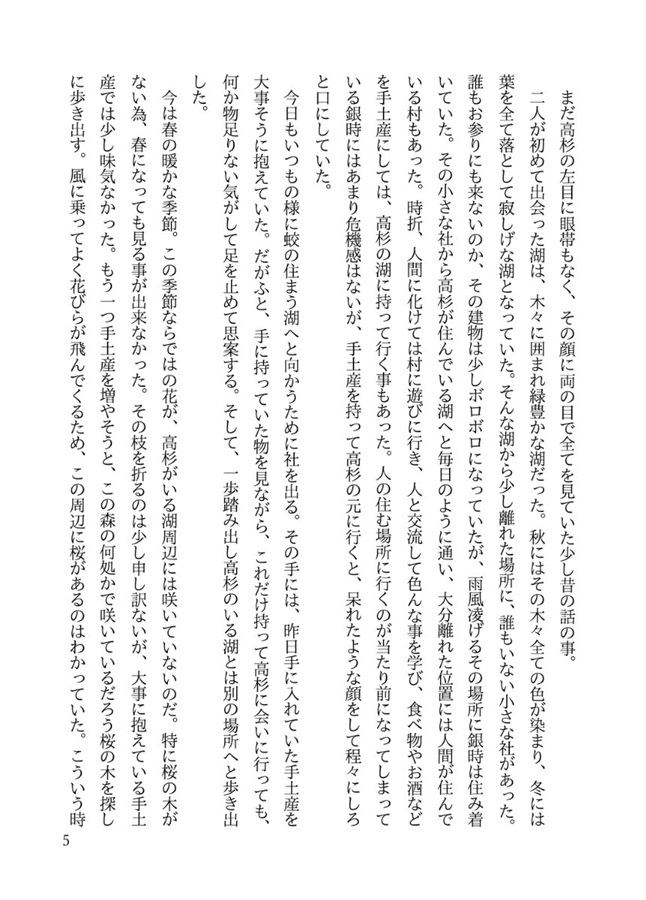 まだ高杉の左目に眼帯もなく、その顔に両の目で全てを見ていた少し昔の話の事。
二人が初めて出会った湖は、木々に囲まれ緑豊かな湖だった。秋にはその木々全ての色が染まり、冬には
葉を全て落として寂しげな湖となっていた。そんな湖から少し離れた場所に、誰もいない小さな社があった。
誰もお参りにも来ないのか、その建物は少しボロボロになっていたが、雨風凌げるその場所に銀時は住み着
いていた。その小さな社から高杉が住んでいる湖へと毎日のように通い、大分離れた位置には人間が住んで
いる村もあった。時折、人間に化けては村に遊びに行き、人と交流して色んな事を学び、食べ物やお酒など
を手土産にしては、高杉の湖に持って行く事もあった。人の住む場所に行くのが当たり前になってしまって
いる銀時にはあまり危機感はないが、手土産を持って高杉の元に行くと、呆れたような顔をして程々にしろ
と口にしていた。
今日もいつもの様に蛟の住まう湖へと向かうために社を出る。その手には、昨日手に入れていた手土産を
大事そうに抱えていた。だがふと、手に持っていた物を見ながら、これだけ持って高杉に会いに行っても、
何か物足りない気がして足を止めて思案する。そして、一歩踏み出し高杉のいる湖とは別の場所へと歩き出
した。
今は春の暖かな季節。この季節ならではの花が、高杉がいる湖周辺には咲いていないのだ。特に桜の木が
ない為、春になっても見る事が出来なかった。その枝を折るのは少し申し訳ないが、大事に抱えている手土
産では少し味気なかった。もう一つ手土産を増やそうと、この森の何処かで咲いているだろう桜の木を探し
に歩き出す。風に乗ってよく花びらが飛んでくるため、この周辺に桜があるのはわかっていた。こういう時
5